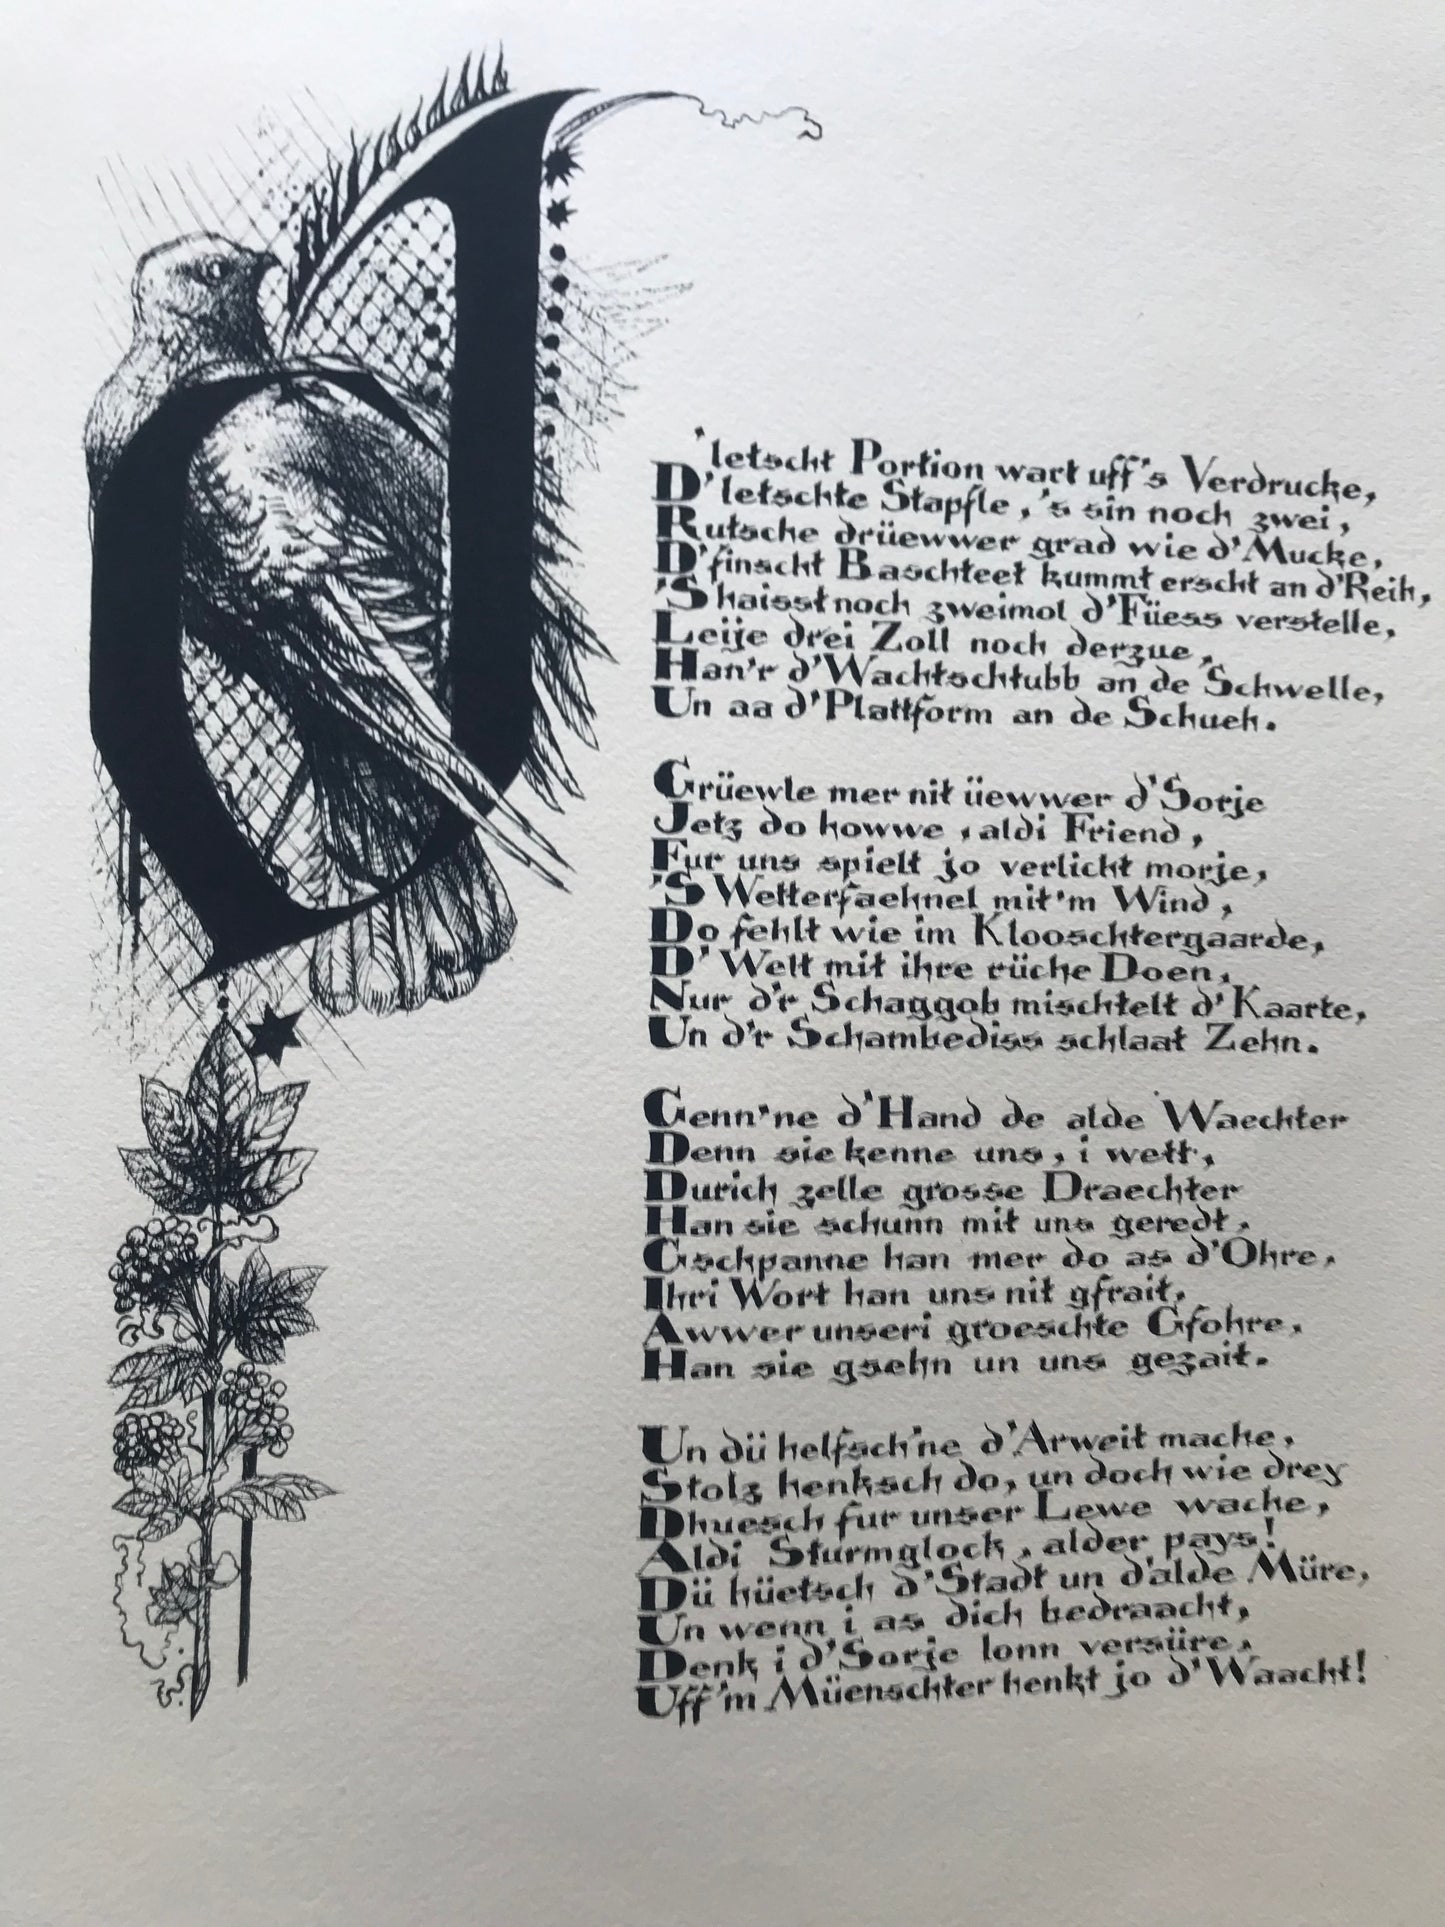 D'letscht Portion wart uff's Verdrucke,
D'letschte Stapfle, 's sin noch zwei,
Rutsche drüewwer grad wie d'Mucke,
D'finscht Baschteet kummt erscht an d'Reih,
'S haisst noch zweimol d'Füess verstelle,
Leije drei Zoll noch derzue,
Han'r d'Wachtschtubb an de Schwelle,
Un aa d'Plattform an de Schueh.
Grüewle mer nit üewwer d'Sorje
Jetz do howwe, aldi Friend,
Fur uns spielt jo verlicht morje,
'S Wetterfaehnel mit'm Wind,
Do fehlt wie im Klooschtergaarde,
D'Welt mit ihre rüche Doen,
Nur d'r Schaggob mischtelt d'Kaarte,
Un d'r Schambediss schlaat Zehn.
Genn'ne d'Hand de alde Waechter
Denn sie kenne uns, i wett,
Durich zelle grosse Draechter
Han sie schunn mit uns geredt,
Gschpanne han mer do as d'Ohre,
Ihri Wort han uns nit gfrait,
Awwer unseri groeschte Gfohre,
Han sie gsehn un uns gezait.
Un dü helfsch'ne d'Arweit mache,
Stolz henksch do, un doch wie drey
Dhuesch fur unser Lewe wache,
Aldi Sturmglock, alder pays!
Dü hüetsch d'Stadt un d'alde Müre,
Un wenn i as dich bedraacht,
Denk i d'Sorje lonn versüre,
Uff'm Müenschter henkt jo d'Waacht!